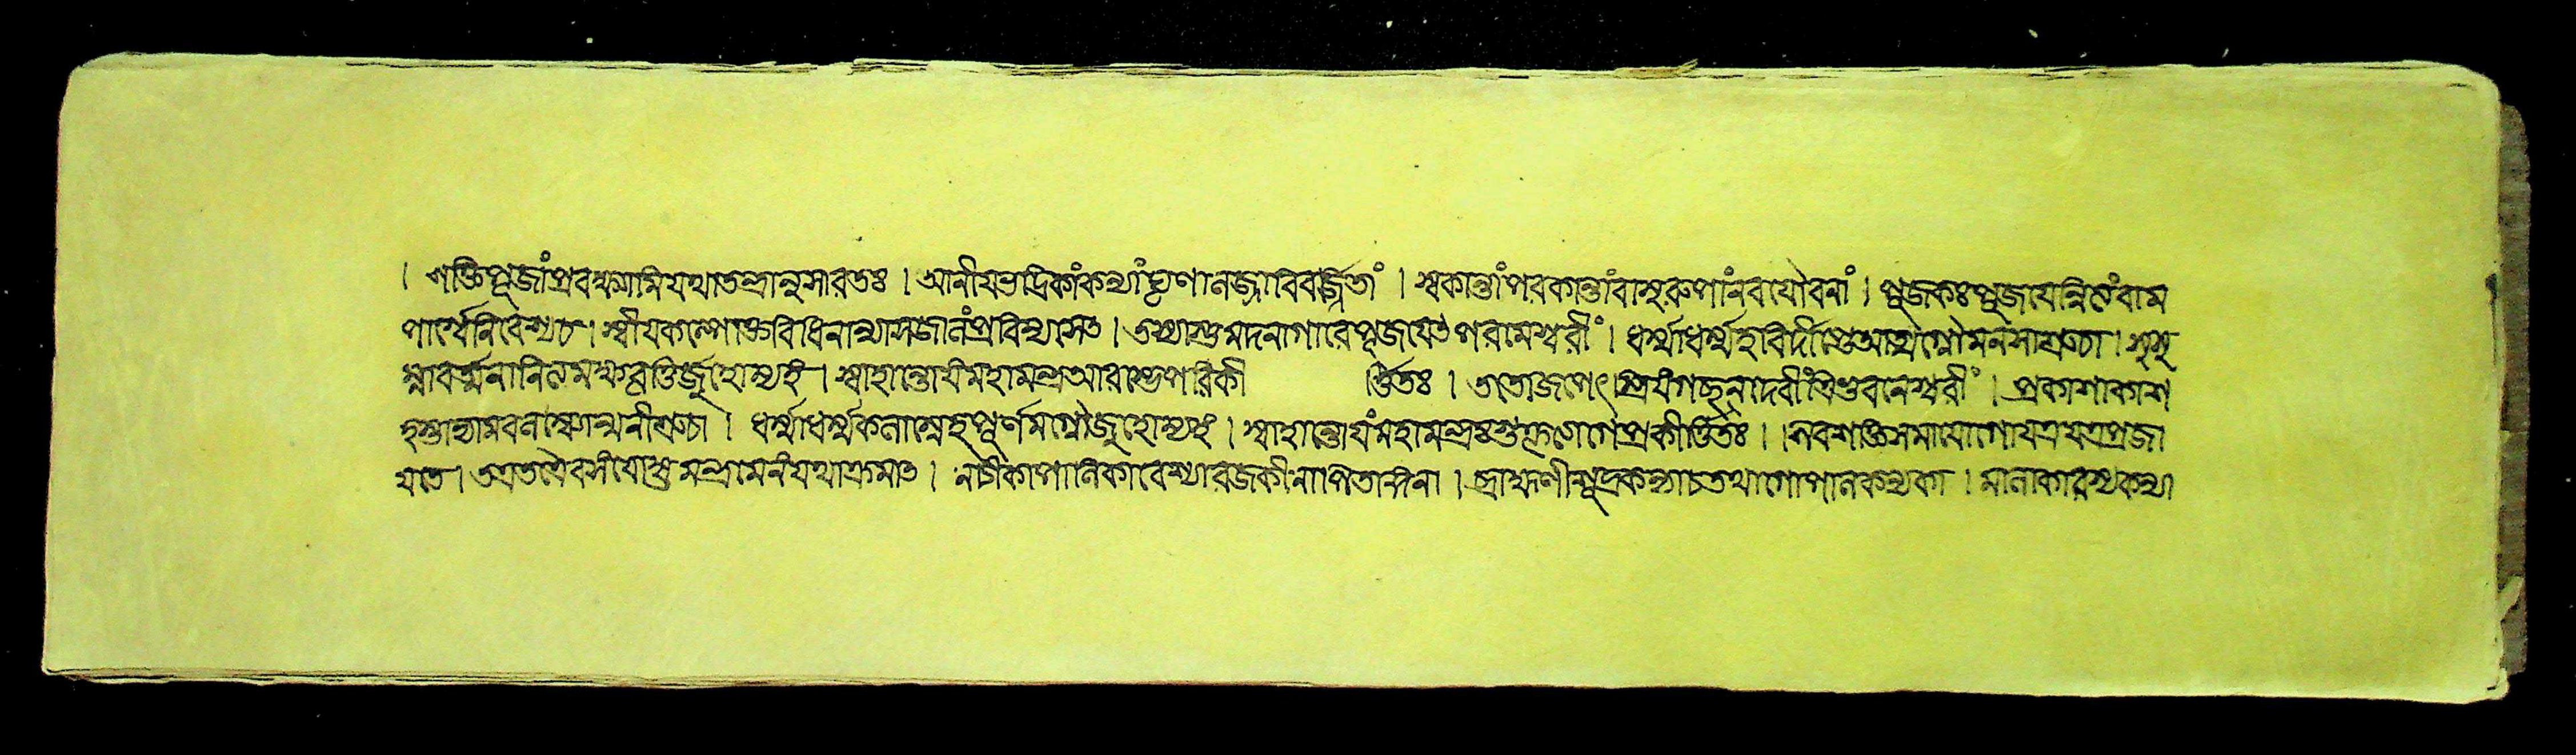 । শক্তিপূজাং প্রবক্ষ্যামি যথাতন্ত্রানুসারতঃ । আনীয় ভদ্রিকাং কন্যাং ঘৃণালজ্জাবিবর্জ্জিতাং । স্বকান্তাং পরকান্তাং বা সুরূপাং নবযৌবনাং । পূজকঃ পূজায়েন্নিত্যং বাম
পার্শ্বে নিবেশ্য চ । স্বীয়কল্পোক্তবিধিনা ন্যাসজালং প্রবিন্যসেৎ । তস্যাস্তু মদনাগারে পূজয়েৎ পরমেশ্বরীং । ধর্ম্মাধর্ম্মহবির্দীপ্তে আত্মাগ্নৌ মনসা শ্রুচা । সুষু
ম্নাবর্ত্মনা নিত্যমক্ষবৃত্তির্জুহোম্যহং । স্বাহান্তোয়ং মহামন্ত্র আরম্ভে পরিকী র্ত্তিতঃ । ততো জপেৎ স্ত্রিয়ং গচ্ছন্ দেবীং ত্রিভুবনেশ্বরীং । প্রকাশাকাশ
হস্তাভ্যামবলম্ব্যোন্মনীশ্রুচা । ধর্ম্মাধর্ম্মকলাস্নেহপূর্ণমগ্নৌ জুহোম্যহং । স্বাহান্তোয়ং মহামন্ত্রঃ শুক্রত্যাগে প্রকীর্ত্তিতঃ । শিবশক্তিসমাযোগো যত্র যত্র প্রজা
য়তে । তত্র তত্রৈব সংযোজ্য মন্ত্রমেনং যথাক্রমাৎ । নটী কাপালিকা বেশ্যা রজকী নাপিতাঙ্গনা । ব্রাহ্মণী শূদ্রকন্যা চ তথা গোপালকন্যকা । মালাকারস্য কন্যা